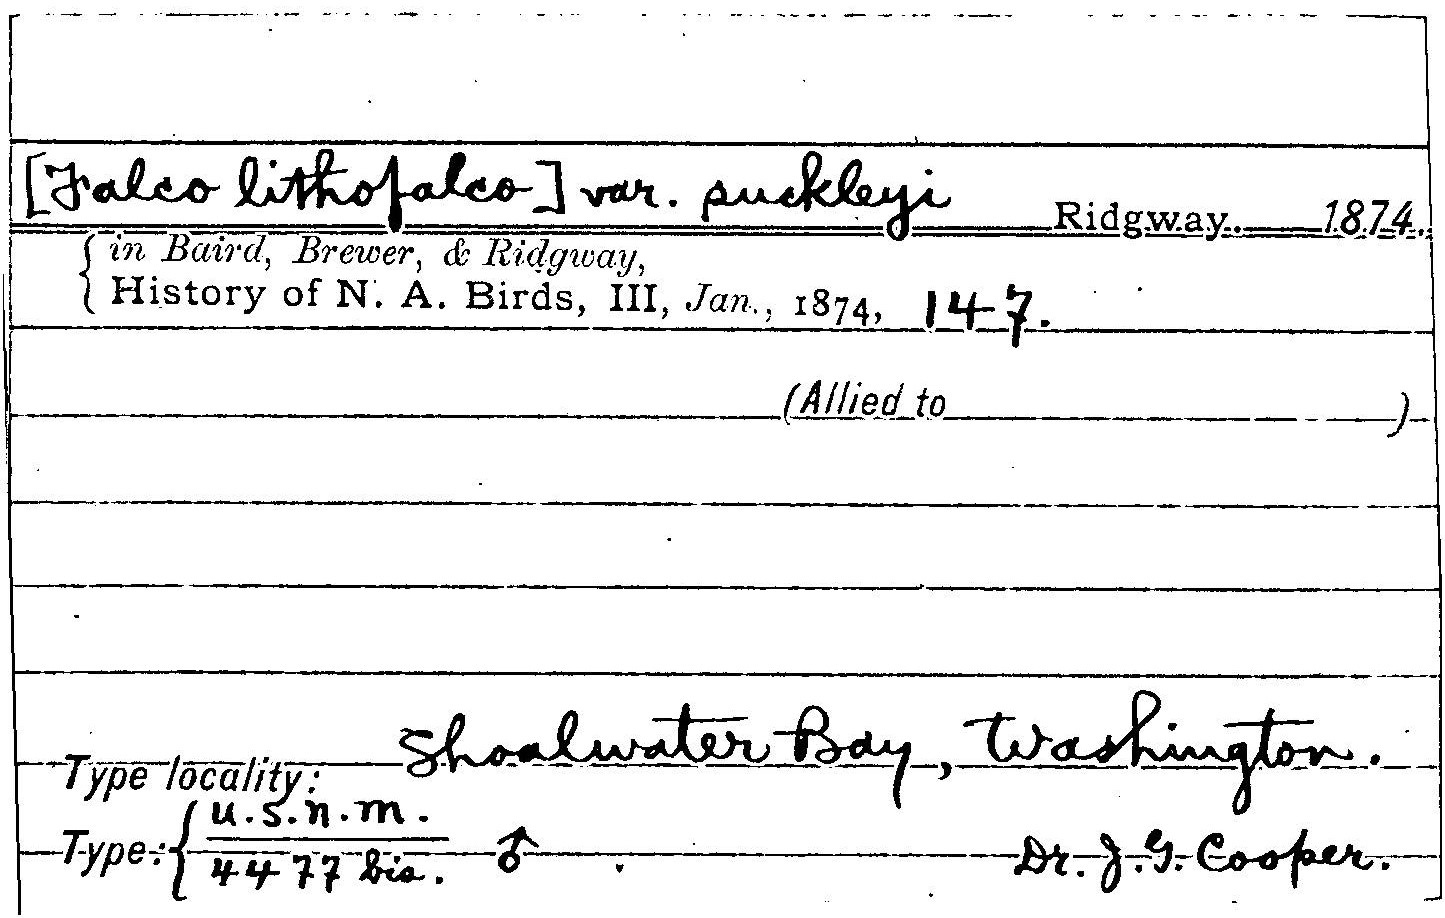 [Falco lithofalco] var. suckleyi Ridgway. 1874.
in Baird, Brewer, & Ridgway,
History of N. A. Birds, III, Jan., 1874, 147.
(Allied to )
Type locality: Shoalwater Bay, Washington.
Type: U.S.N.M.
4477 bis. ♂ Dr. J. G. Cooper.